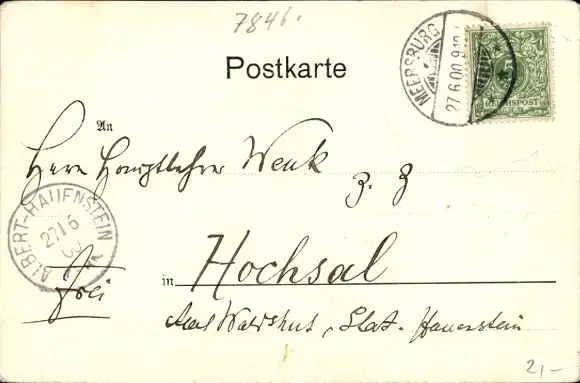 7846.
Postkarte
MEERSBURG
27.6.00.9-10
5
REICHSPOST
An
Herrn Hauptlehrer Wenk
z. Z
ALBERT-HAUENSTEIN
27/6
00
Frei
in Hochsal
Amt Waldshut, Stat. Hauenstein
21,-